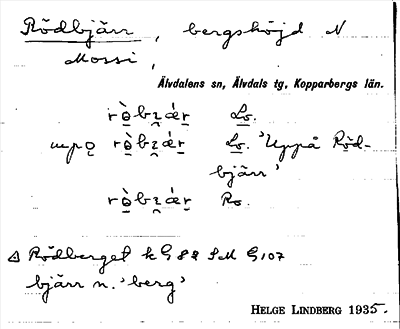 Rödbjärr, bergshöjd N
Mossi,
Älvdalens sn, Älvdals tg, Kopparbergs län.
Lo.
Lo. 'Uppå Röd-
bjärr'
Ro.
Rödberget kG 82 SM G, 107
bjärr n. 'berg'
HELGE LINDBERG 1935.